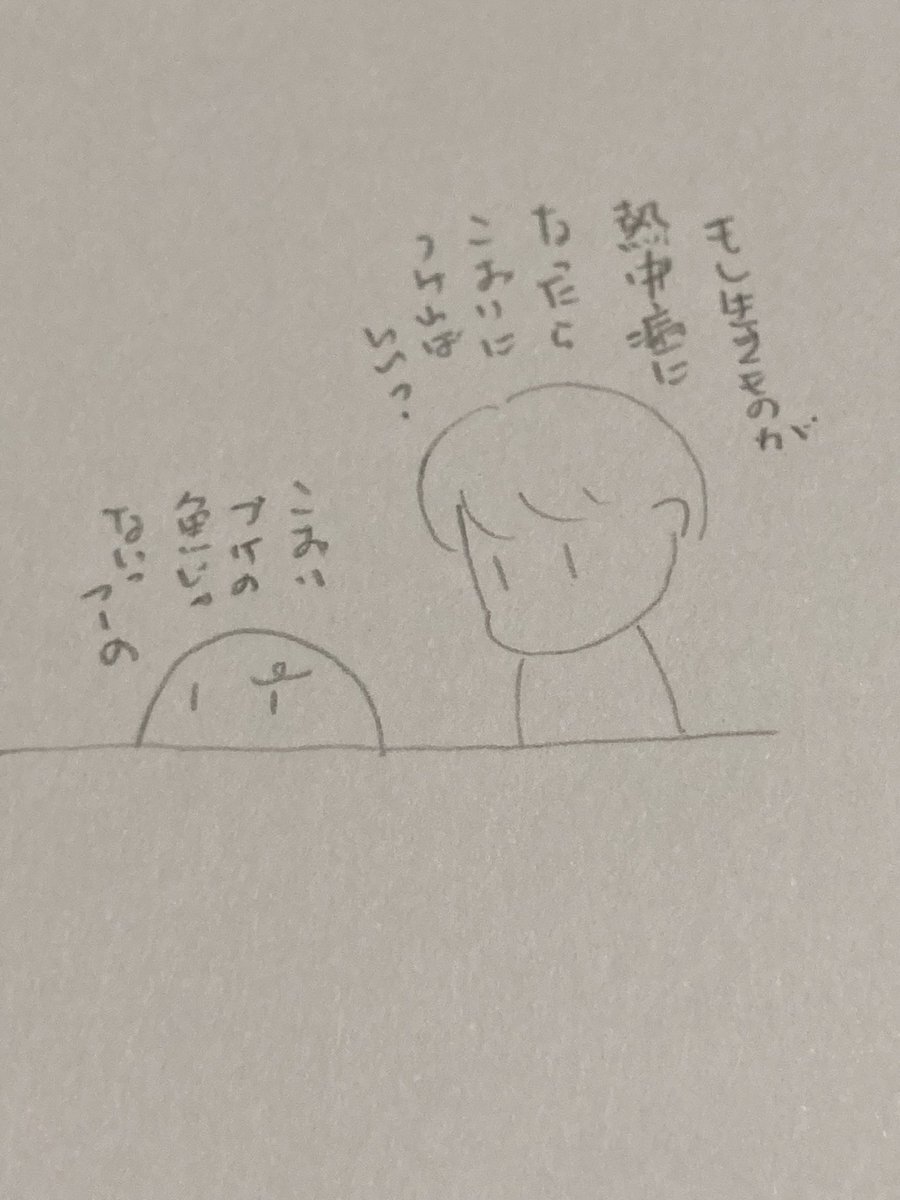 もし生きものが
熱中症に
なったら
こおりに
つければ
いい?
こおり
づけの
魚じゃ
ないっ
つーの